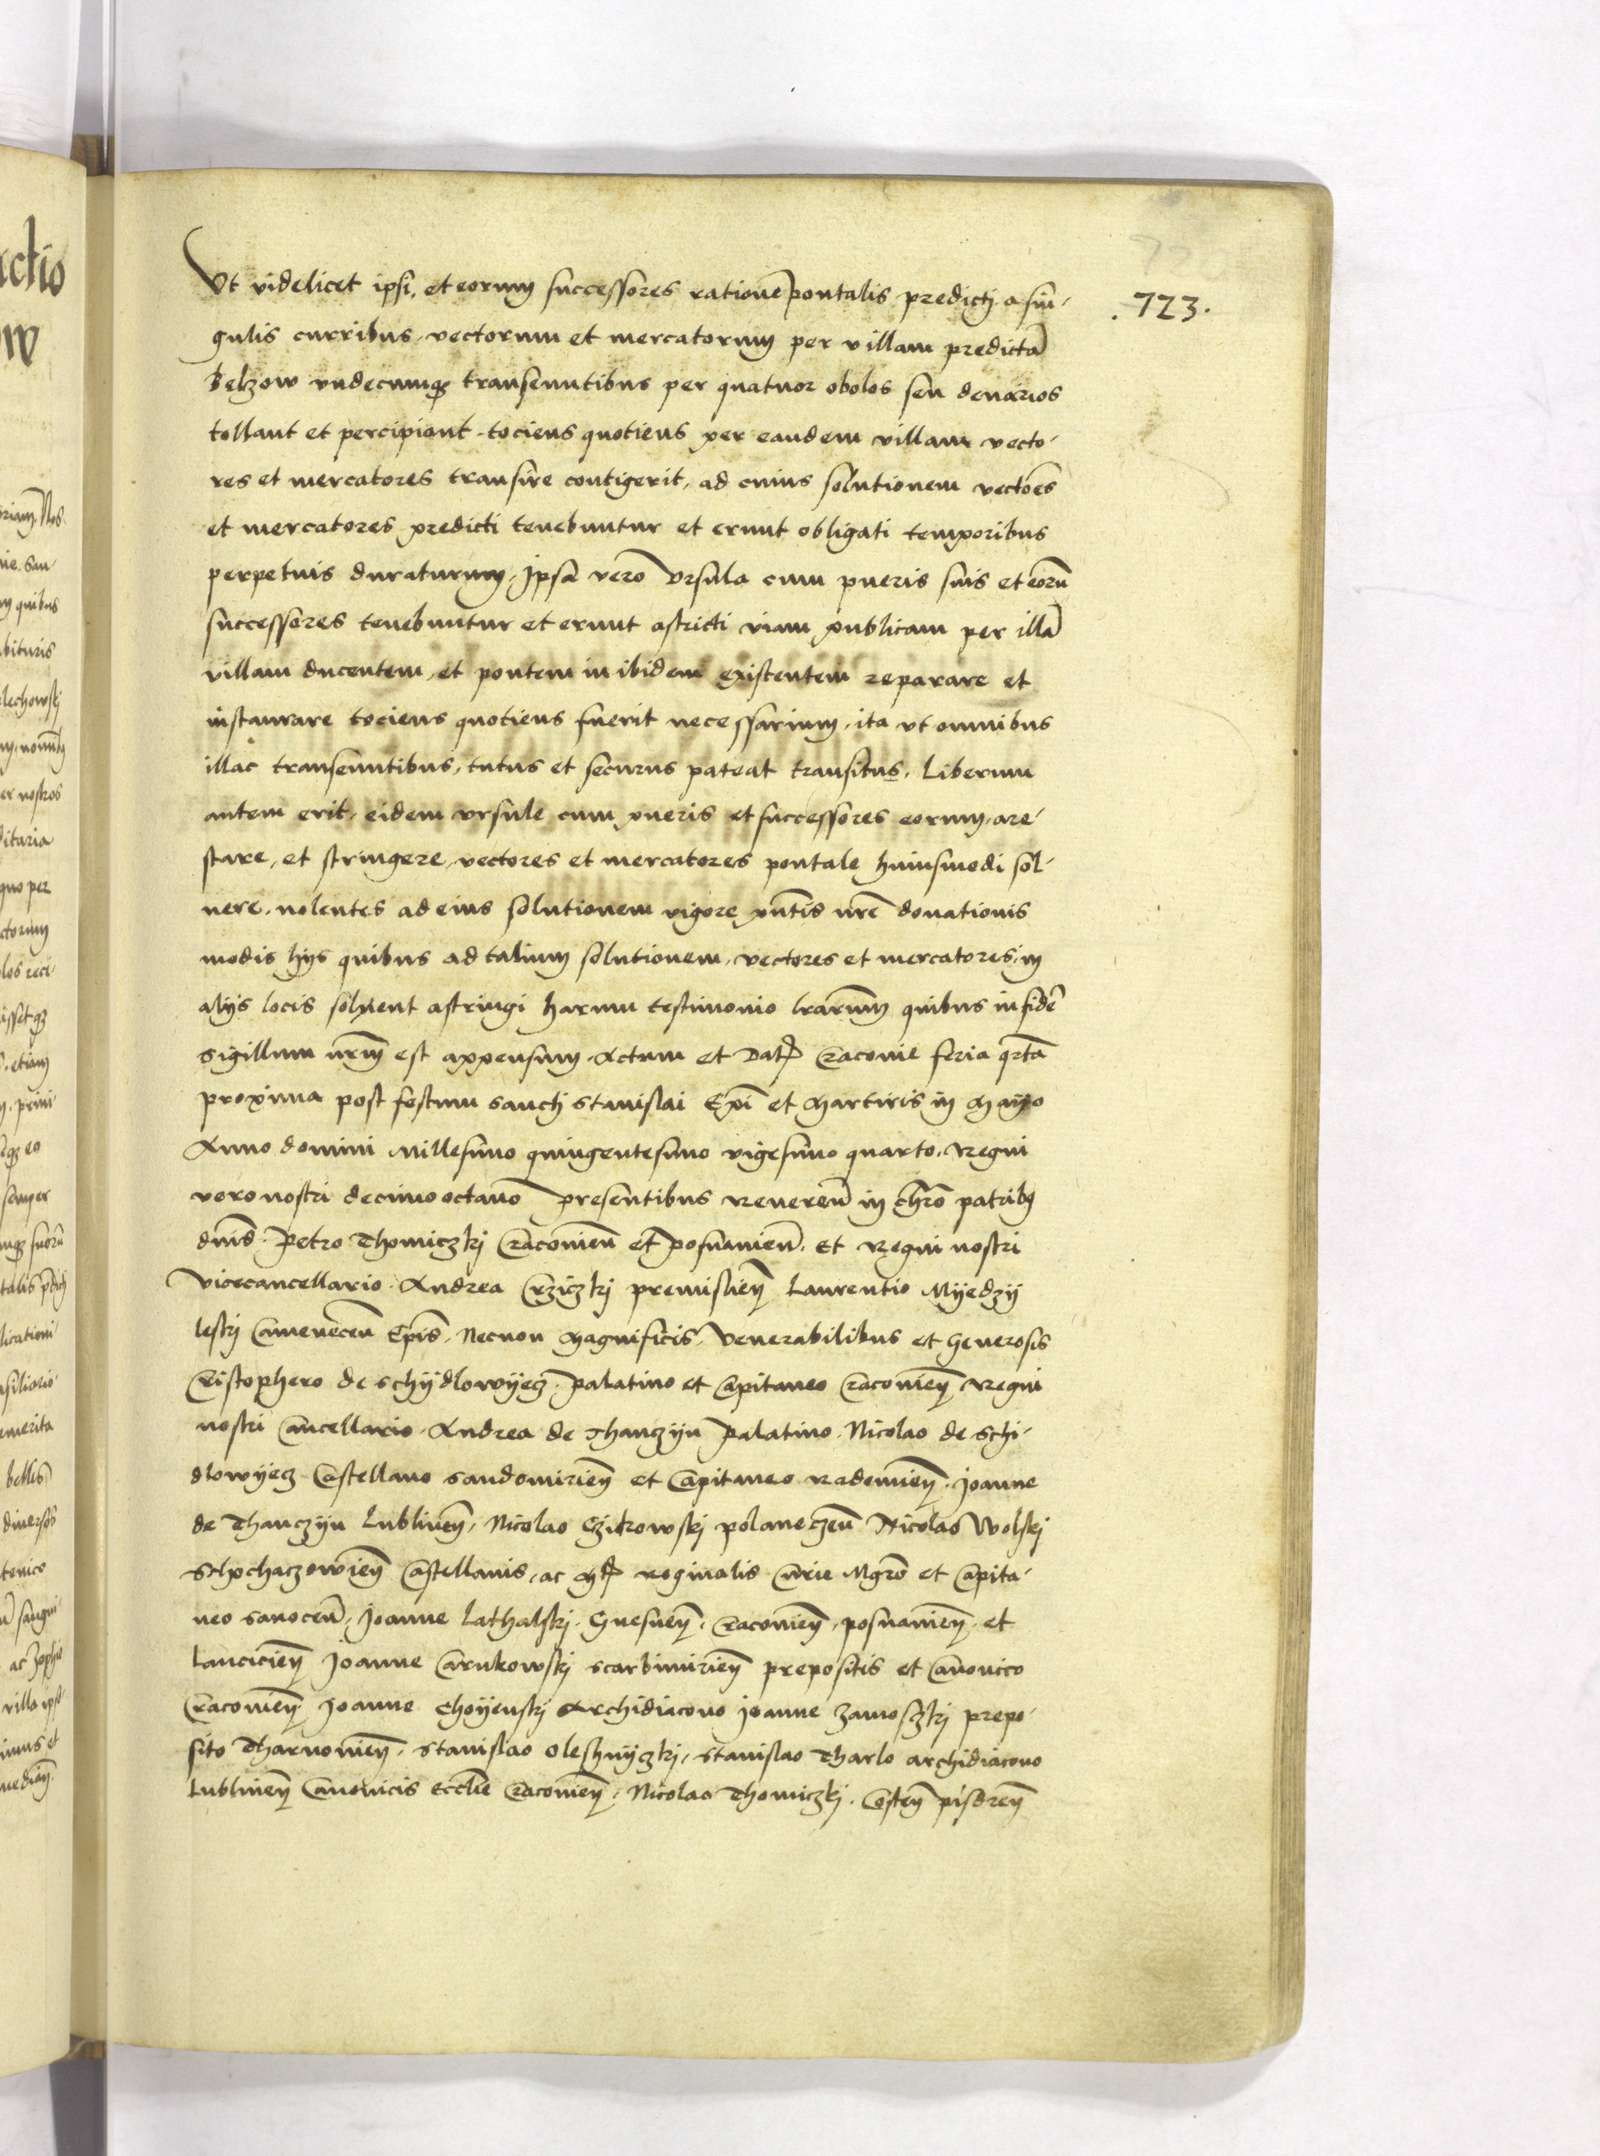 .723.
Vt videlicet ipsi, et eorum successores rationē pontalis predicti a sin-
gulis curribus, vectorum et mercatorum per villam predictā
Belzow vndecunqꝫ transeuntibus per quatuor obolos seu denarios
tollant et percipiant tociens quotiens per eandem villam vecto-
res et mercatores transire contigerit, ad cuius solutionem vectoēs
et mercatores predicti tenebuntur et erunt obligati temporibus
perpetuis duraturum, Ipsa vero Vrsula cum pueris suis et eorū
successores tenebuntur et erunt astricti viam publicam per illā
villam ducentem, et pontem in ibidem existentem reparare et
instaurare tociens quotiens fuerit necessarium, ita vt omnibus
illac transeuntibus, tutus et securus pateat transitus. Liberum
autem erit, eidem vrsule cum pueris et successores eorum, are-
stare, et stringere, vectores et mercatores pontale huiusmodi sol-
uere, nolentes ad eius solutionem vigore pn̄tis nr̄e donationis
modis hys quibus ad talium solutionem, vectores et mercatores, in
alijs locis solent astringi harum testimonio lrārum quibus in fidē
sigillum nr̄m est appensum. Actum et Dat. Cracovie feria qrta
proxima post festum sancti stanislai Epī et Martiris in Mayo
Anno domini Millesimo quingentesimo vigesimo quarto. Regni
vero nostri decimooctauo presentibus Reuereñ in chrō patribꝫ
dnīs. Petro Thomiczkj Cracouieñ et posnanieñ. Et Regni nostri
vicecancellario. Andrea Crziczkj premislieñ Laurentio Myedzy
leskj Cameneceñ Epīs. Necnon Magnificis, Venerabilibus et Generosis
Cristophero de schydlowyecz. palatino et Capitaneo Cracouieñ Regni
nostri Cancellario. Andrea de Thanczyn palatino. Nicolao de Schi-
dlowyecz Castellano sandomirieñ et Capitaneo Radomieñ. Joanne
de Thanczyn Lublineñ, Nicolao Czikowskj polaneczeñ Nicolao Wolskj
Schochaczowieñ Castellanis, ac Reginalis Curie Mgrō et Capita-
neo sanoceñ, Joanne Lathalskj. Gnesneñ. Cracouieñ, posnanieñ. et
Lancicieñ Joanne Carnkowskj scarbimirieñ prepositis et Canonico
Cracouieñ Joanne Choyenskj Archidiacono Joanne Zamoszkj prepo-
sito Tharnouieñ. Stanislao Oleschnyczkj, Stanislao Tharlo archidiacono
Lublineñ Canonicis Ecclīe Cracouieñ. Nicolao Thomiczkj.